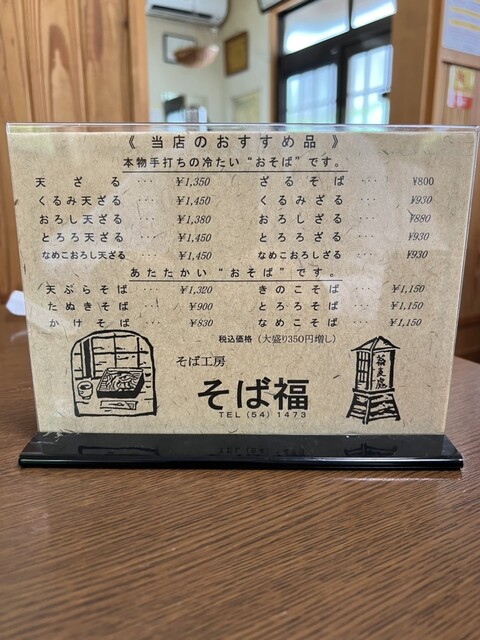 《 当店のおすすめ品 》
本物手打ちの冷たい“おそば”です。
天ざる ··· ¥1,350 ざるそば ··· ¥800
くるみ天ざる ··· ¥1,450 くるみざる ··· ¥930
おろし天ざる ··· ¥1,380 おろしざる ··· ¥880
とろろ天ざる ··· ¥1,450 とろろざる ··· ¥930
なめこおろし天ざる ··· ¥1,450 なめこおろしざる ··· ¥930
あたたかい“おそば”です。
天ぷらそば ··· ¥1,320 きのこそば ··· ¥1,150
たぬきそば ··· ¥900 とろろそば ··· ¥1,150
かけそば ··· ¥830 なめこそば ··· ¥1,150
税込価格（大盛り350円増し）
そば工房
そば福
TEL (54) 1473